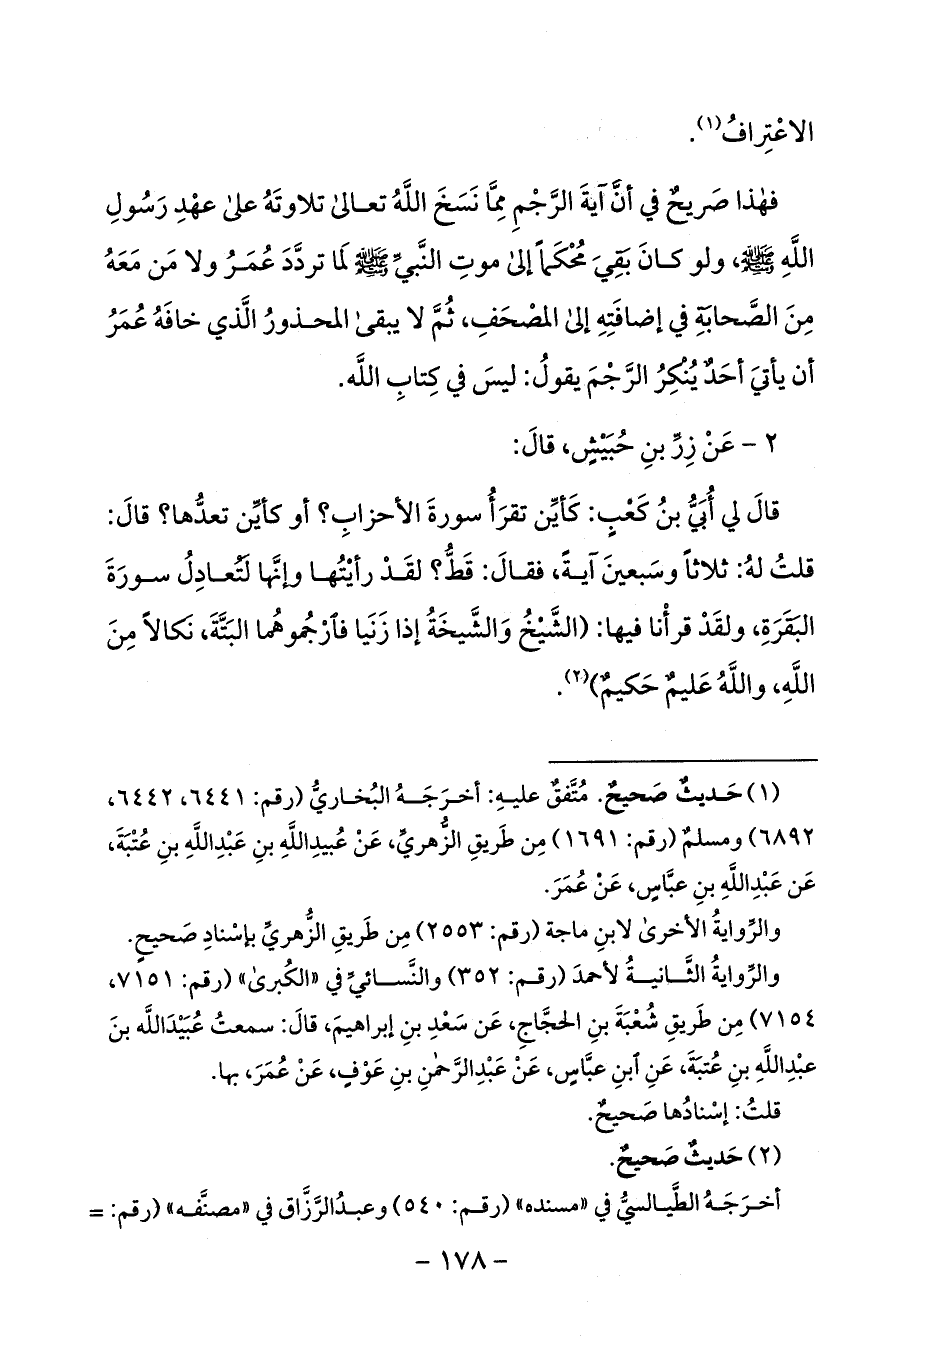 الاعْتِرافُ(١).
فهٰذا صَريحٌ في أنَّ آيةَ الرَّجْمِ مِمَّا نَسَخَ اللَّهُ تعالىٰ تلاوتَهُ علىٰ عهْدِ رَسُولِ
اللَّهِ ﷺ، ولو كانَ بَقِيَ مُحْكَماً إلىٰ موتِ النَّبيِّ ﷺ لَما تردَّدَ عُمَرُ ولا مَن مَعَهُ
مِنَ الصَّحابَةِ في إضافَتِهِ إلىٰ المصْحَفِ، ثُمَّ لا يبقىٰ المحذورُ الَّذي خافَهُ عُمَرُ
أن يأتيَ أحَدٌ يُنْكِرُ الرَّجْمَ يقولُ: ليسَ في كِتابِ اللَّه.
٢ - عَنْ زِرِّ بنِ حُبَيْشٍ، قالَ:
قالَ لي أُبَيُّ بنُ كَعْبٍ: كَأيِّن تقرَأُ سورةَ الأحزابِ؟ أو كأيِّن تعدُّها؟ قالَ:
قلتُ لهُ: ثلاثاً وسَبعينَ آيةً، فقالَ: قَطُّ؟ لقَدْ رأيْتُها وإنَّها لَتُعادِلُ سورَةَ
البَقَرَةِ، ولقَدْ قرأْنا فيها: (الشَّيْخُ وَالشَّيخَةُ إذا زَنَيا فٱرْجُموهُما البَتَّةَ، نَكالاً مِنَ
اللَّهِ، واللَّهُ عَليمٌ حَكيمٌ)(٢).
(١) حَديثٌ صَحيحٌ. مُتَّفقٌ عليهِ: أخرَجَهُ البُخاريُّ (رقم: ٦٤٤١، ٦٤٤٢،
٦٨٩٢) ومسلمٌ (رقم: ١٦٩١) مِن طَريقِ الزُّهريِّ، عَنْ عُبيدِاللَّهِ بنِ عَبْدِاللَّهِ بنِ عُتْبَةَ،
عَن عَبْدِاللَّهِ بنِ عبَّاسٍ، عَنْ عُمَرَ.
والرِّوايةُ الأخرىٰ لابنِ ماجة (رقم: ٢٥٥٣) مِن طَريقِ الزُّهريِّ بإسْنادِ صَحيحٍ.
والرِّوايةُ الثَّانيةُ لأحمدَ (رقم: ٣٥٢) والنَّسائيِّ في «الكُبرىٰ» (رقم: ٧١٥١،
٧١٥٤) مِن طَريقِ شُعْبَةَ بنِ الحجَّاجِ، عَن سَعْدِ بنِ إبراهيمَ، قالَ: سمعتُ عُبَيْدَاللَّه بنَ
عبْدِاللَّهِ بنِ عُتبَةَ، عَنِ ٱبنِ عبَّاسٍ، عَنْ عَبْدِالرَّحمٰنِ بنِ عَوْفٍ، عَنْ عُمَرَ، بها.
قلتُ: إسْنادُها صَحيحٌ.
(٢) حَديثٌ صَحيحٌ.
أخرَجَهُ الطَّيالسيُّ في «مسنده» (رقم: ٥٤٠) وعبدُالرَّزَّاق في «مصنَّفه» (رقم: =
- ١٧٨ -